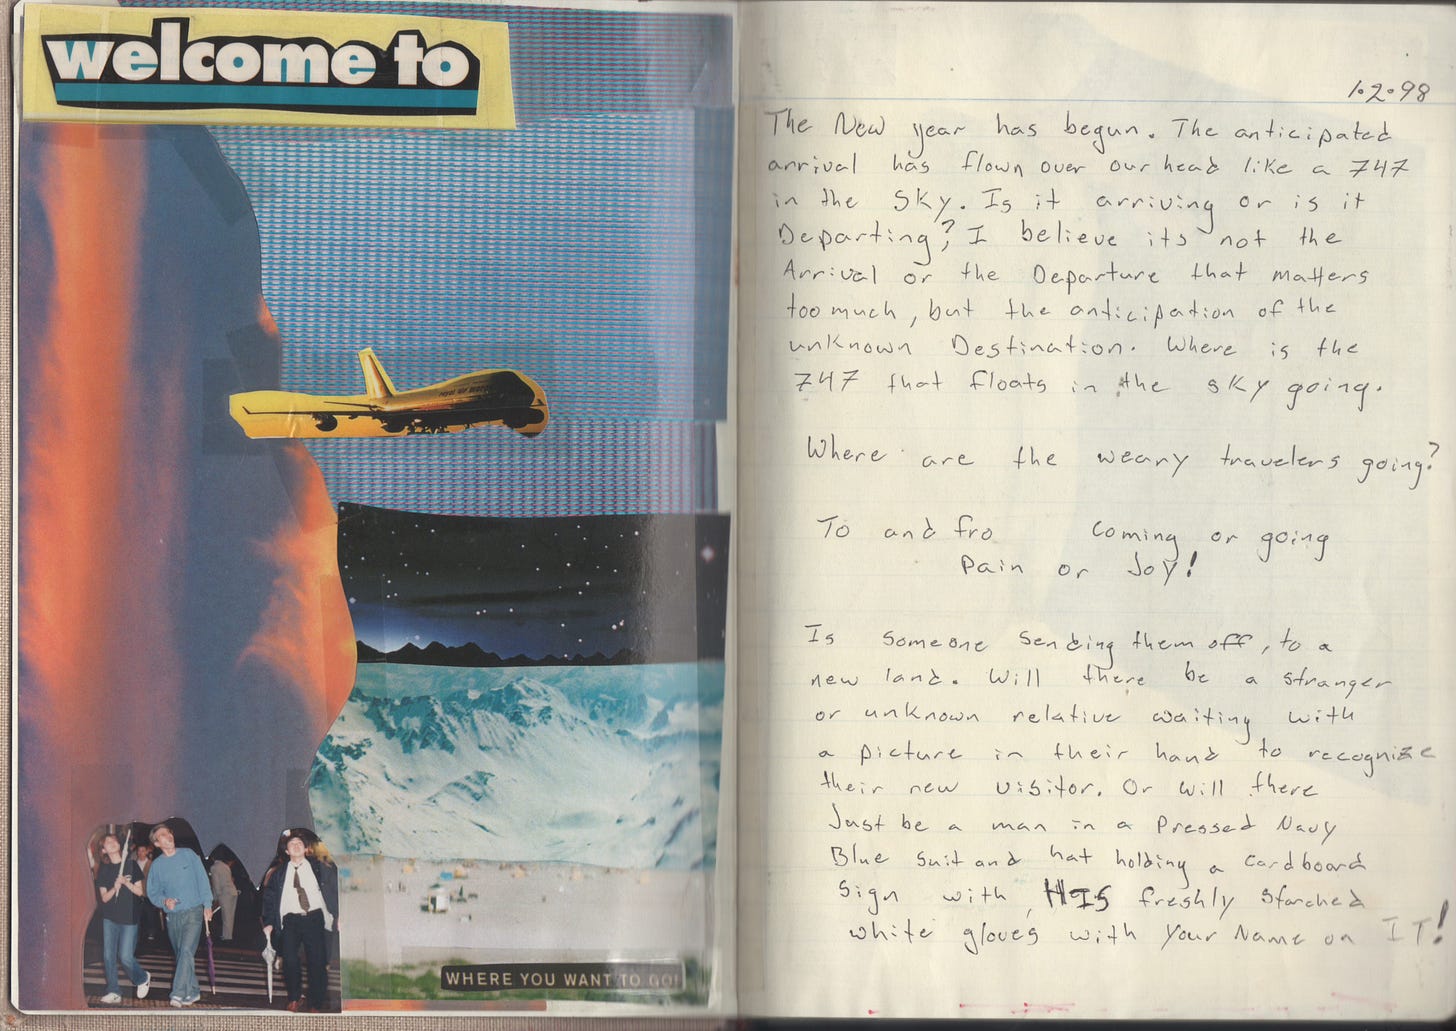 welcome to
WHERE YOU WANT TO GO!
1.2.98
The New year has begun. The anticipated
arrival has flown over our head like a 747
in the Sky. Is it arriving or is it
Departing? I believe its not the
Arrival or the Departure that matters
too much, but the anticipation of the
unknown Destination. Where is the
747 that floats in the sky going.
Where are the weary travelers going?
To and fro coming or going
Pain or Joy!
Is someone sending them off, to a
new land. Will there be a stranger
or unknown relative waiting with
a picture in their hand to recognize
their new visitor. Or will there
Just be a man in a Pressed Navy
Blue suit and hat holding a cardboard
sign with, HIS freshly starched
white gloves with your Name on IT!